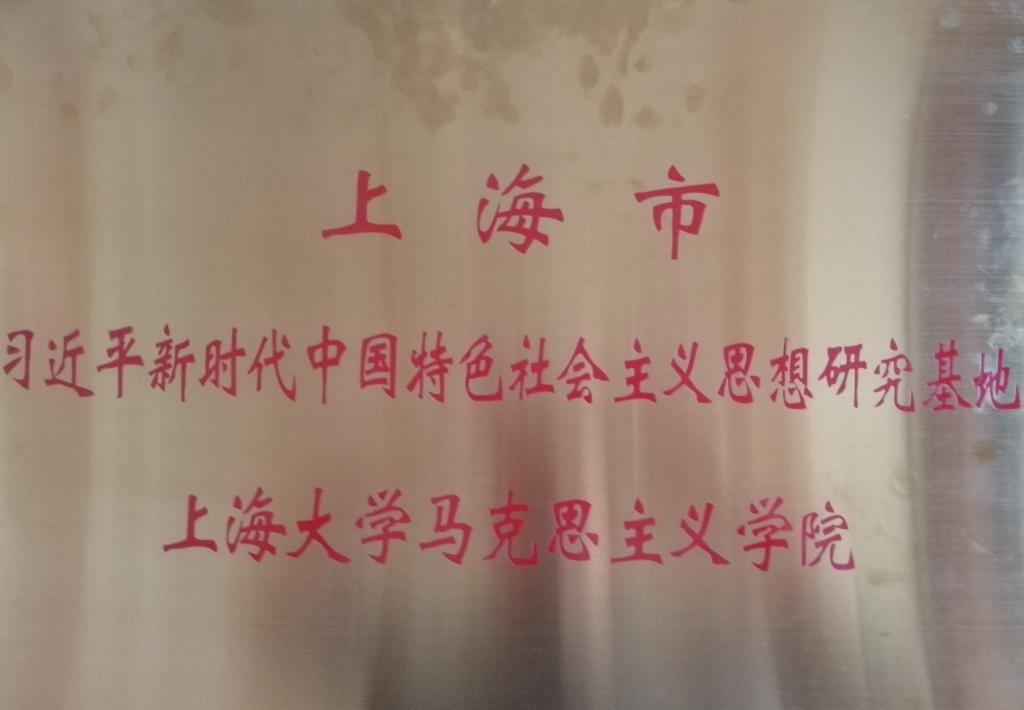 上海市
习近平新时代中国特色社会主义思想研究基地
上海大学马克思主义学院